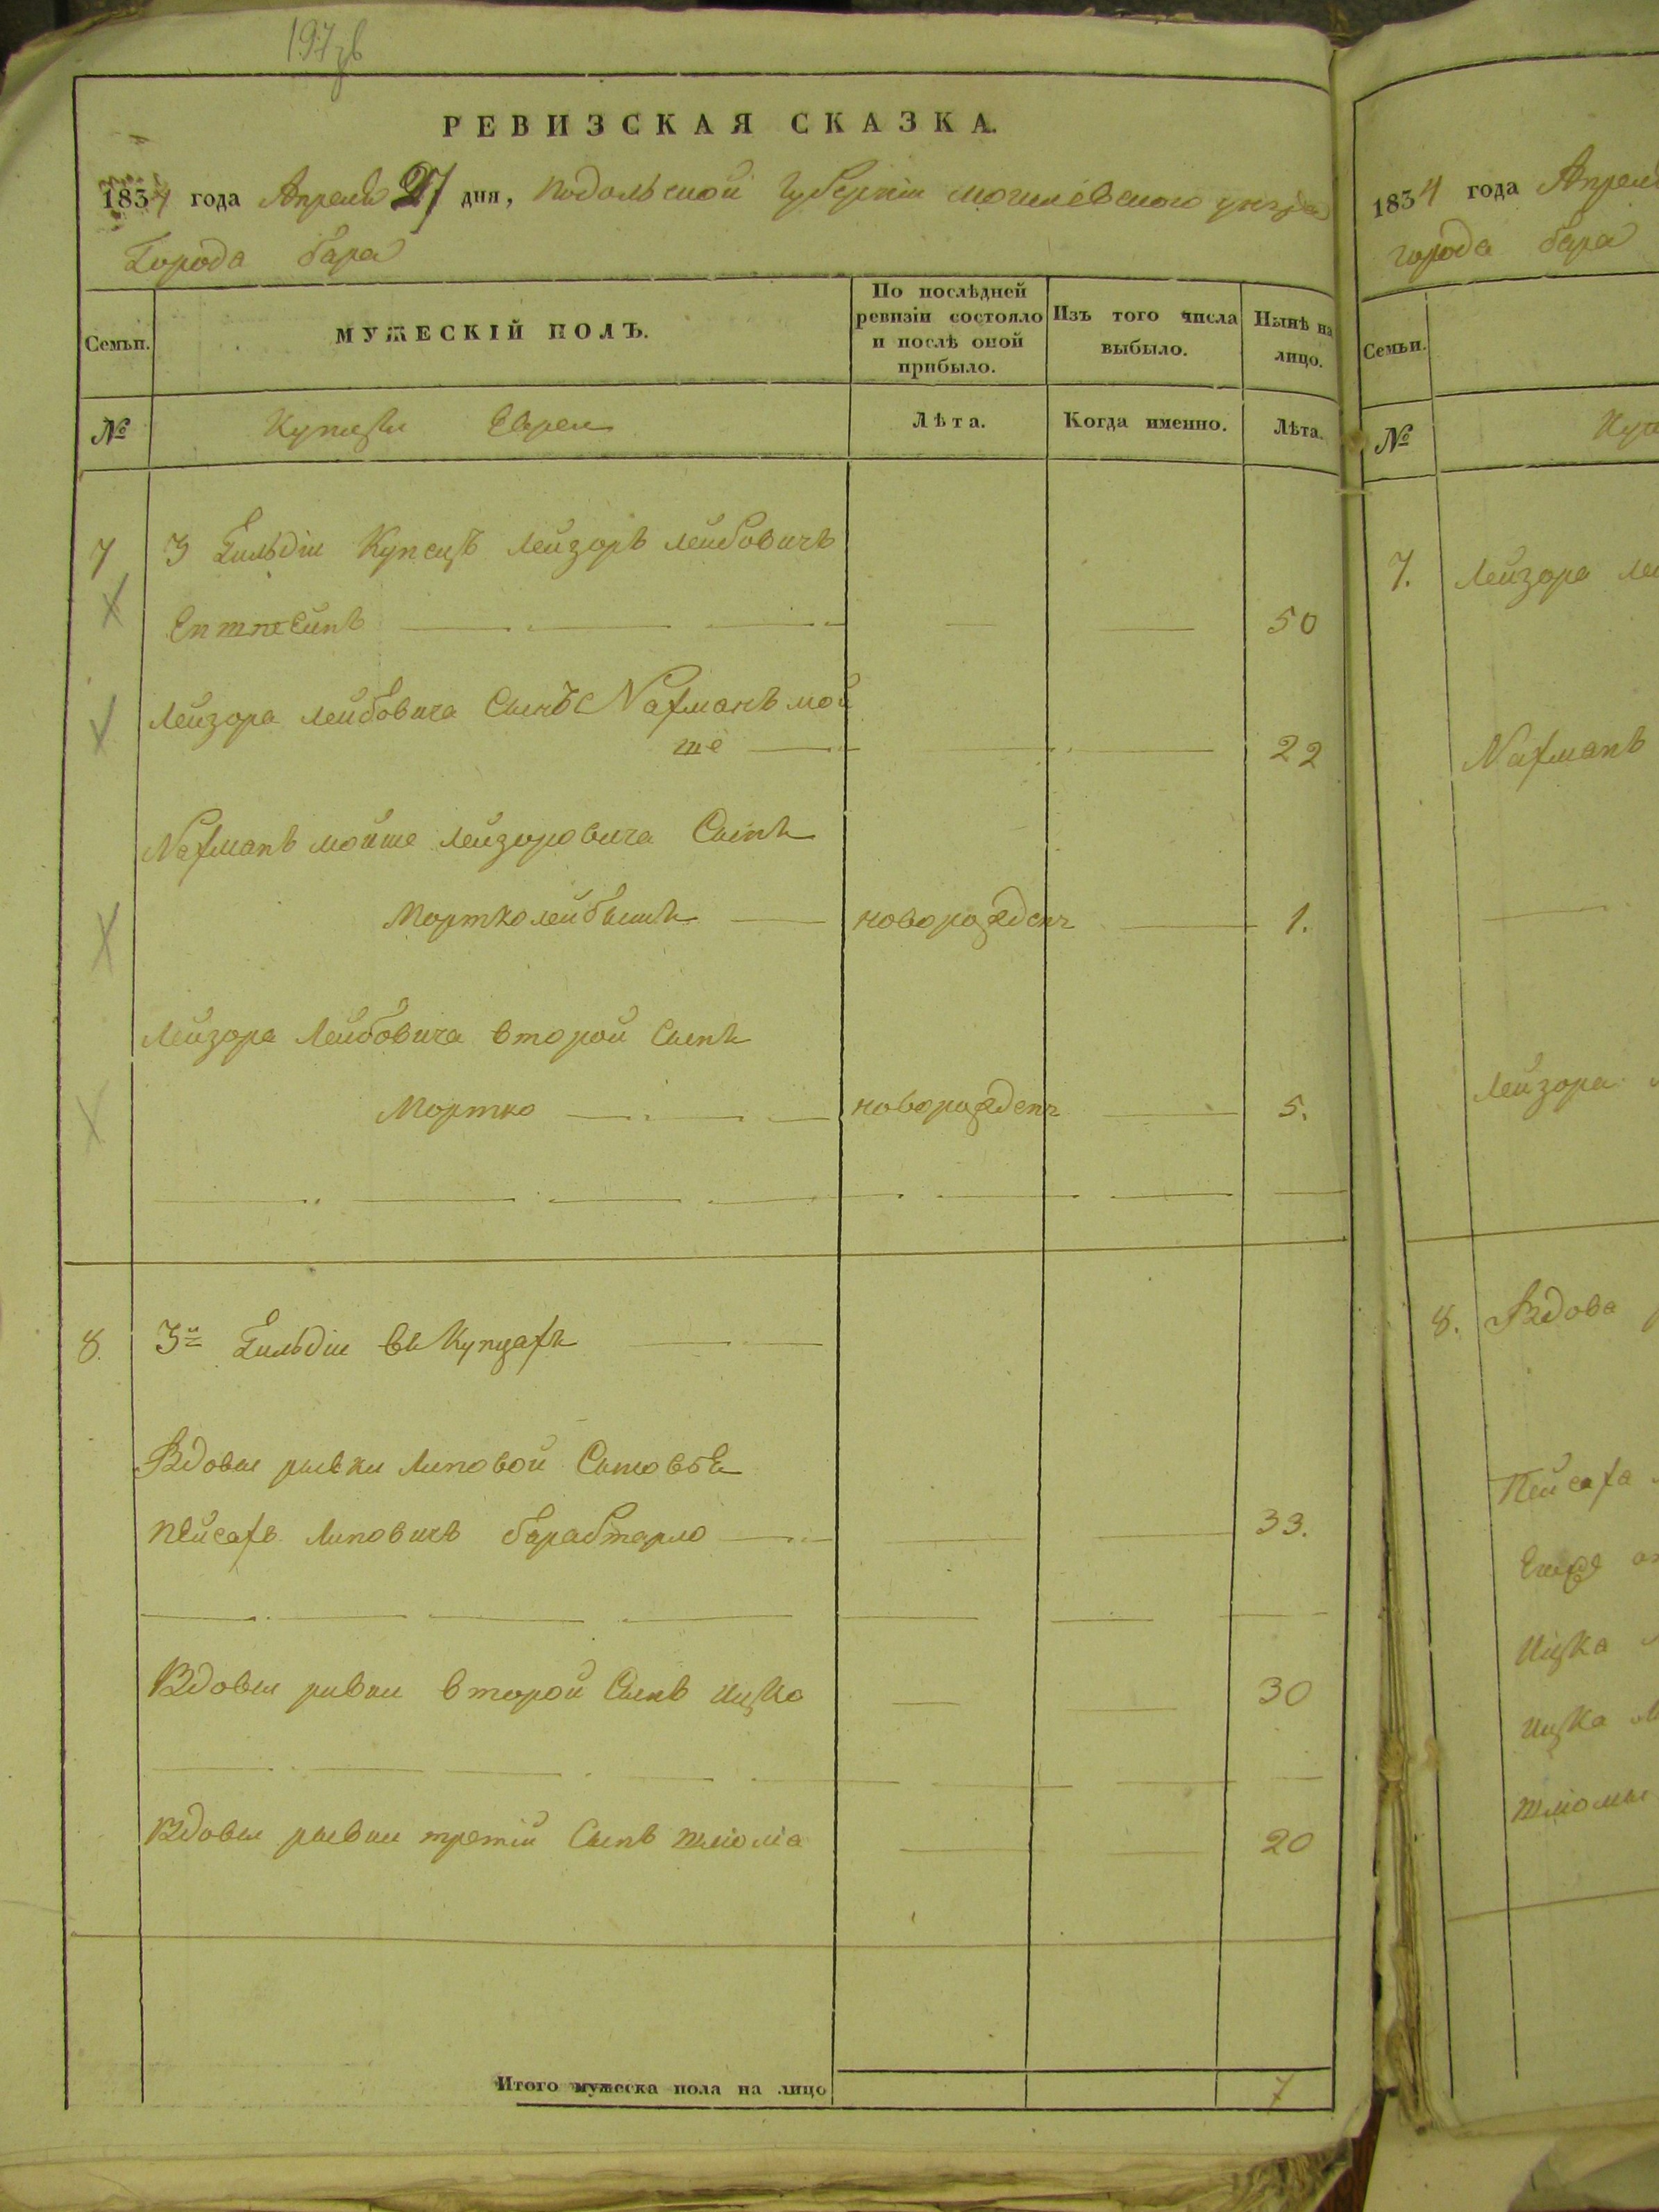 197 зв
РЕВИЗСКАЯ СКАЗКА.
1834 года Апреля 27 дня, подольской Губернии могилевского уезда
Города бара
Семьи.
МУЖЕСКІЙ ПОЛЪ.
По послѣдней ревизіи состояло и послѣ оной прибыло.
Изъ того числа выбыло.
Нынѣ на лицо.
№
Купцы Евреи
Лѣта.
Когда именно.
Лѣта.
7 3 Гильдіи Купецъ Лейзоръ Лейбовичъ
— — 50
Лейзора Лейбовича Сынъ Nахманъ мой
ше — — 22
Nахманъ мойше Лейзоровича Сынъ
Мортколейбышъ — новорожденъ — 1.
Лейзора Лейбовича второй Сынъ
Мортко — новорожденъ — 5.
8. 3й Гильдіи въ Купцахъ —
Вдовы рывки Липовой Сыновьъ
пейсахъ Липовичъ барабтарло — — 33.
Вдовы ривки второй Сынъ ицко — — 30
Вдовы рывки третій Сынъ шліома — — 20
Итого мужеска пола на лицо 7
1834 года Апреля
города бара
Семьи.
№
7. Лейзора
Nахманъ
Лейзора
8. Вдова
Пейсаха
Ицка
ицка
шліомы